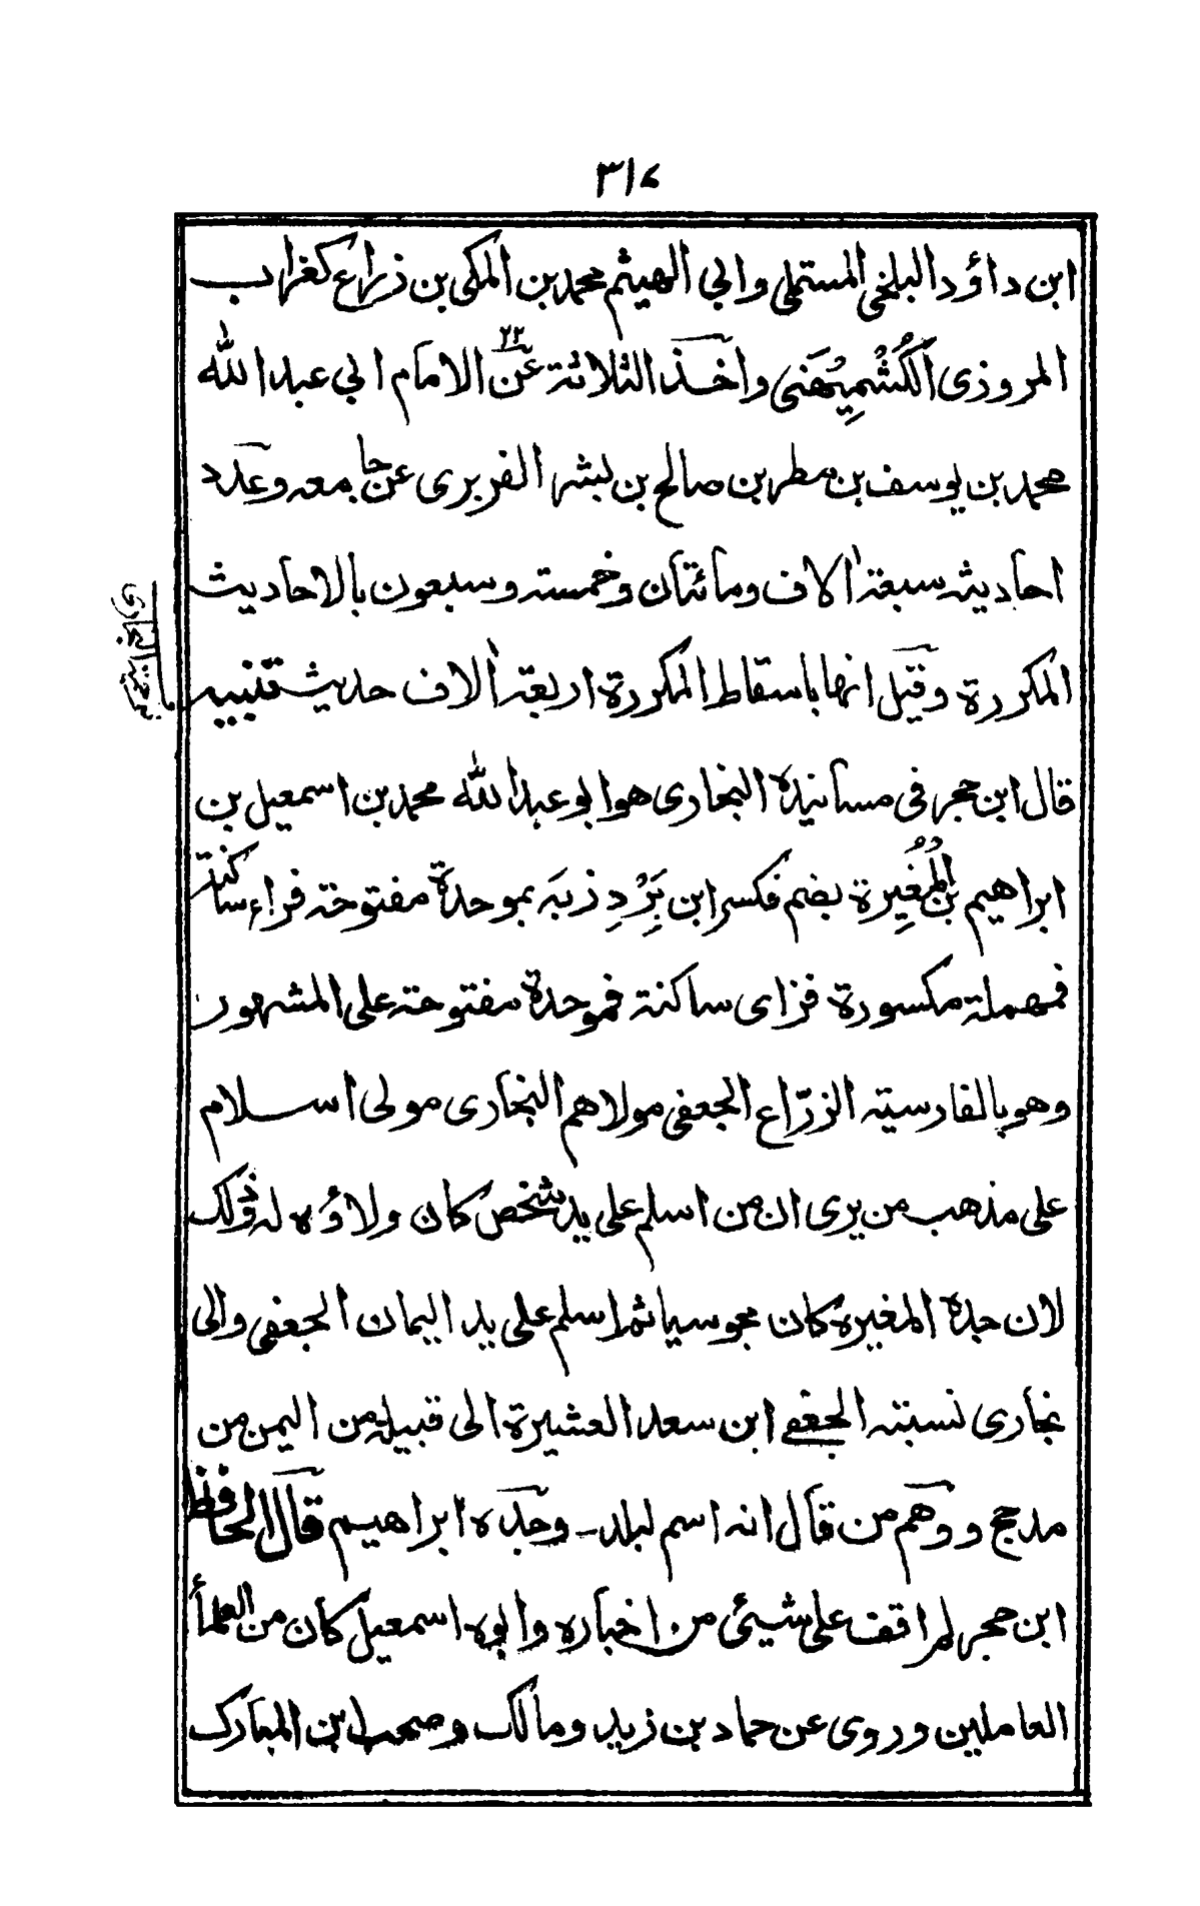 ٣١٤
ابن داؤد البلخي المستملي وابي الهيثم محمد بن المكي بن زراع كغراب
المروزى الكُشْمِيْهَنى واخذ الثلاثة عن ٢٢ الامام ابي عبد الله
محمد بن يوسف بن مطر بن صالح بن بشر الفربرى عن جامعه وعدد
احاديثه سبعة الاف ومائتان وخمسته وسبعون بالاحاديث
المكررة وقيل انها باسقاط المكررة اربعة الاف حديث تنبيه
ترجمة البخارى
قال ابن حجر فى مسانيده البخارى هو ابو عبد الله محمد بن اسمعيل بن
ابراهيم بن المُغِيرة بضم فكسر ابن بَرْدِزبَه بموحدة مفتوحة فراء ساكنة
فمهملة مكسورة فزاى ساكنة فموحدة مفتوحة على المشهور
وهو بالفارسية الزرّاع الجعفى مولاهم البخارى مولى اسلام
على مذهب من يرى ان من اسلم على يد شخص كان ولاؤه له وذلك
لان جده المغيرة كان مجوسيا ثم اسلم على يد اليمان الجعفى والى
بخارى نسبته الجعفى ابن سعد العشيرة الى قبيلة من اليمن من
مدحج ووهم من قال انه اسم لبلد وجده ابراهيم قال الحافظ
ابن حجر لم اقف على شيئى من اخباره وابوه اسمعيل كان من العلمأ
العاملين وروى عن حماد بن زيد ومالك وصحب ابن المبارك